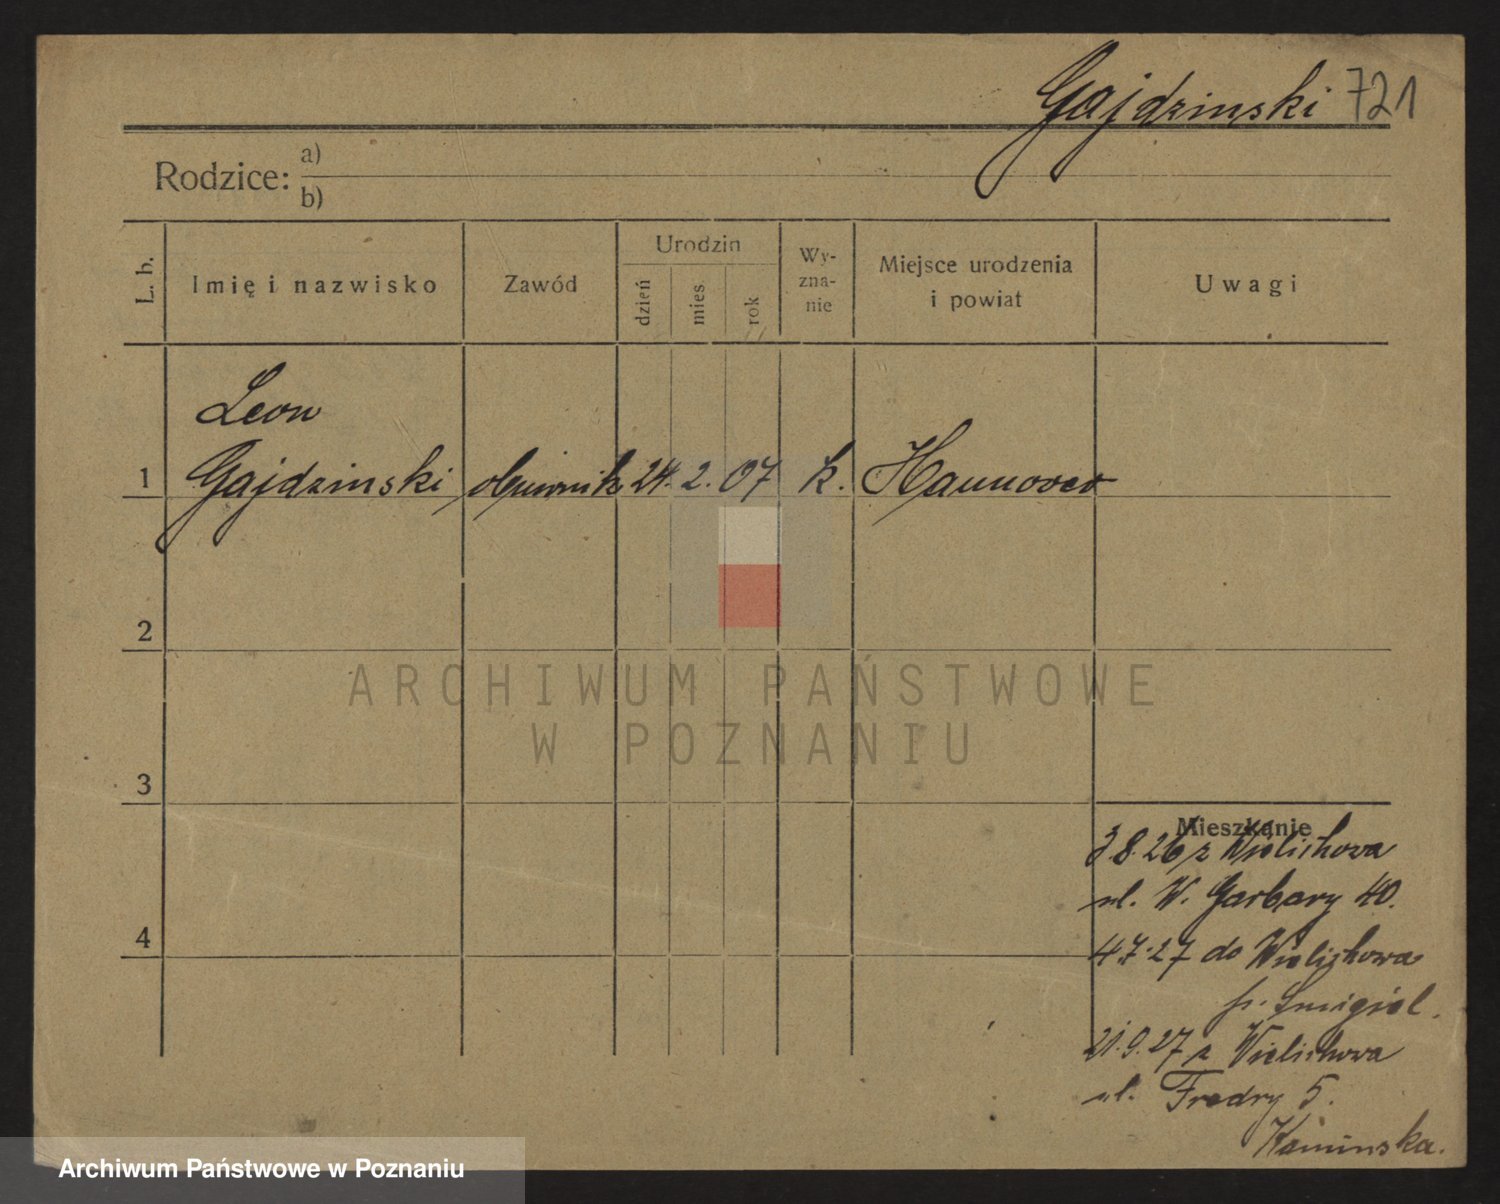 Gajdzinski 721
Rodzice: a)
b)
L. b.
Imię i nazwisko
Zawód
Urodzin
dzień
mies.
rok
Wy-
zna-
nie
Miejsce urodzenia
i powiat
Uwagi
Leon
1 Gajdzinski 24. 2. 07 k. Hannover
2
3
4
Mieszkanie
3.8.26 z Wielichowa
ul. W. Garbary 40.
4.7.27 do Wielichowa
p. Śmigiel.
21.9.27 z Wielichowa
ul. Fredry 5.
Kaminska.
ARCHIWUM PAŃSTWOWE
W POZNANIU
Archiwum Państwowe w Poznaniu